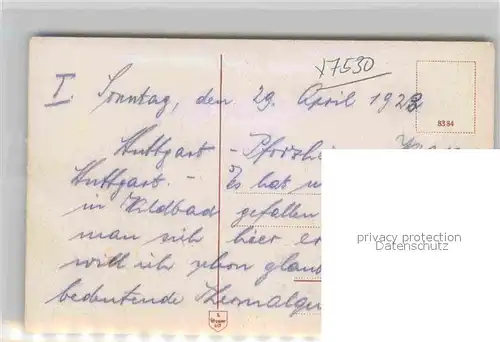 x7530
I. Sonntag, den 29. April 1923
8384
Stuttgart - Pforzhei
Stuttgart. - Es hat
in Wildbad gefallen
man sich hier er
will ich schon glau
bedeutende Thermalqu
privacy protection
Datenschutz